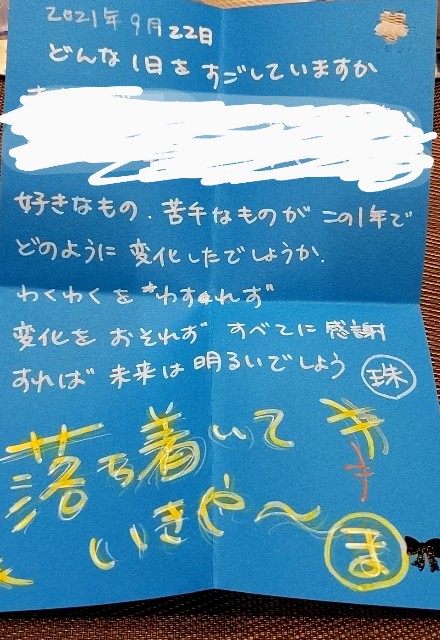 2021年9月22日
どんな1日をすごしていますか
好きなもの、苦手なものがこの1年で
どのように変化したでしょうか.
わくわくをわすれず
変化をおそれず すべてに感謝
すれば 未来は明るいでしょう 珠
落ち着いて
いきや〜 ま